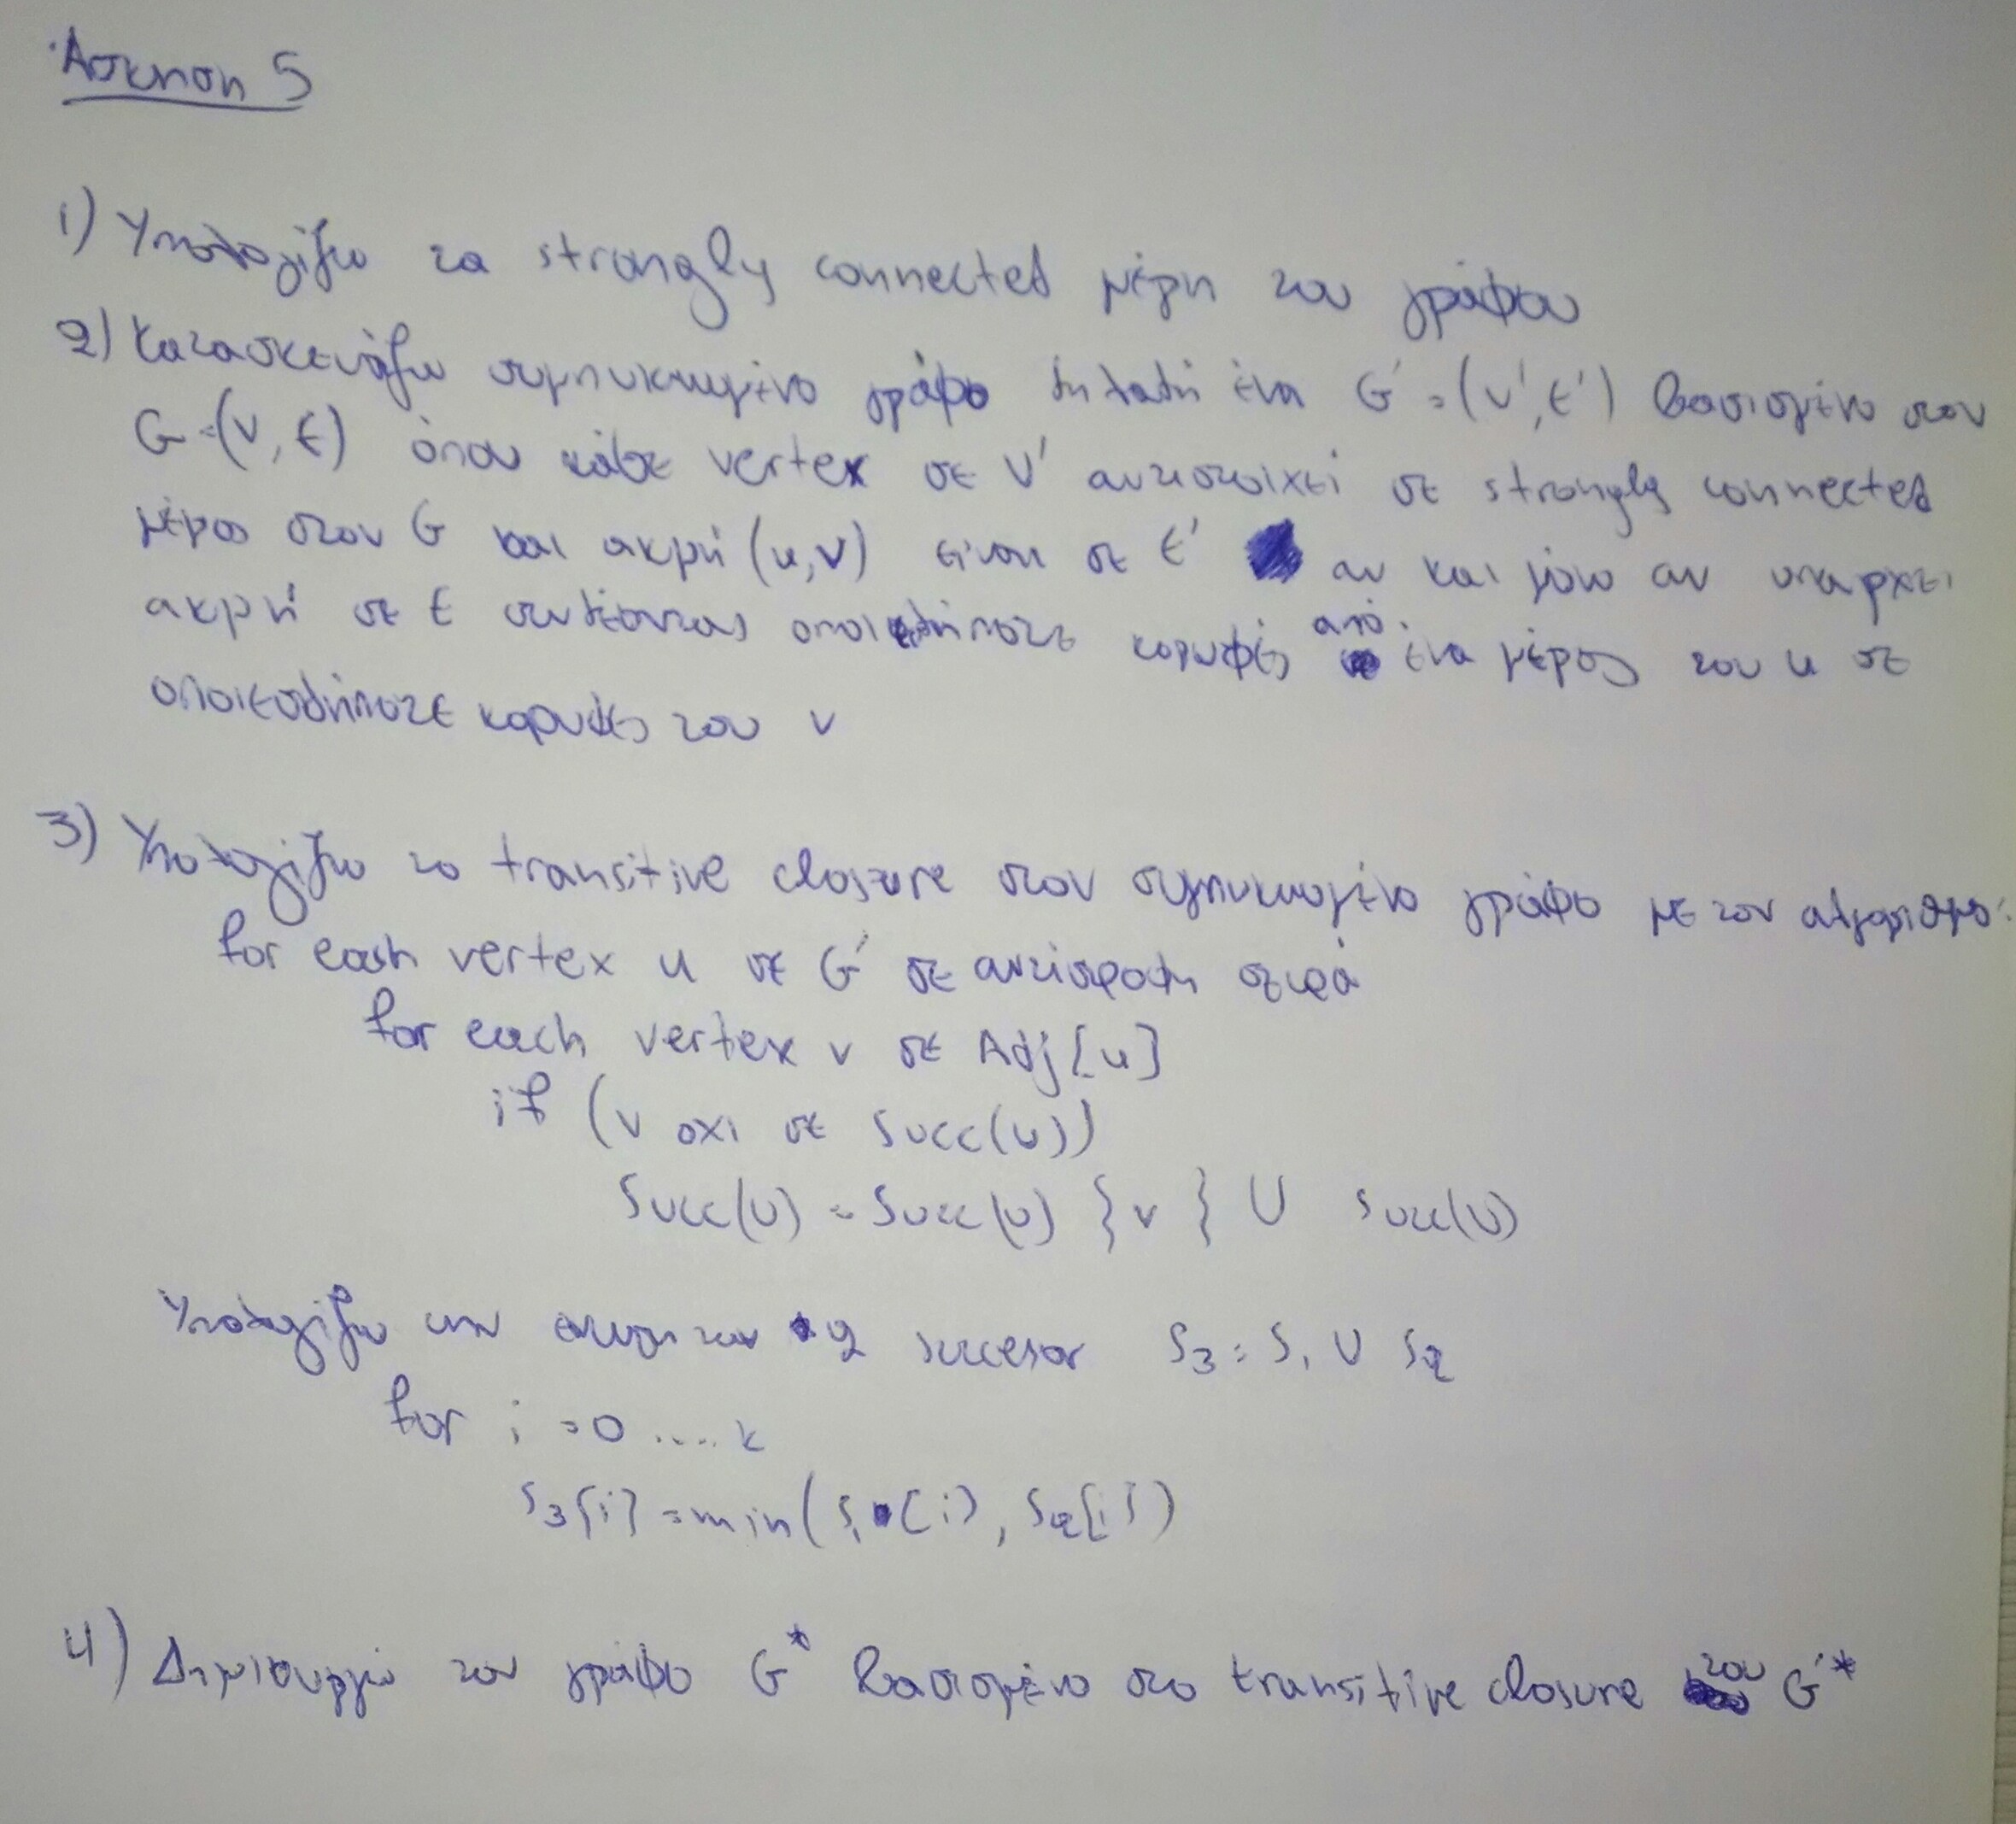 Άσκηση 5
1) Υπολογίζω τα strongly connected μέρη του γράφου
2) Κατασκευάζω συμπυκνωμένο γράφο δηλαδή ένα G' = (V', E') βασισμένο στον
G = (V, E) όπου κάθε vertex σε V' αντιστοιχεί σε strongly connected
μέρος στον G και ακμή (u, v) είναι σε E' αν και μόνο αν υπαρχει
ακμή σε E συνδέοντας οποιεσδήποτε κορυφές από ένα μέρος του u σε
οποιεσδήποτε κορυφές του v
3) Υπολογίζω το transitive closure στον συμπυκνωμένο γράφο με τον αλγοριθμο:
for each vertex u σε G' σε αντίστροφη σειρά
for each vertex v σε Adj[u]
if (v οχι σε Succ(u))
Succ(u) = Succ(u) } v } U Succ(u)
Υπολογίζω την ενωση των 2 succesor S3 = S1 U S2
for i = 0 .... k
S3[i] = min(S1[i], S2[i])
4) Δημιουργώ τον γράφο G* βασισμένο στο transitive closure του G'*